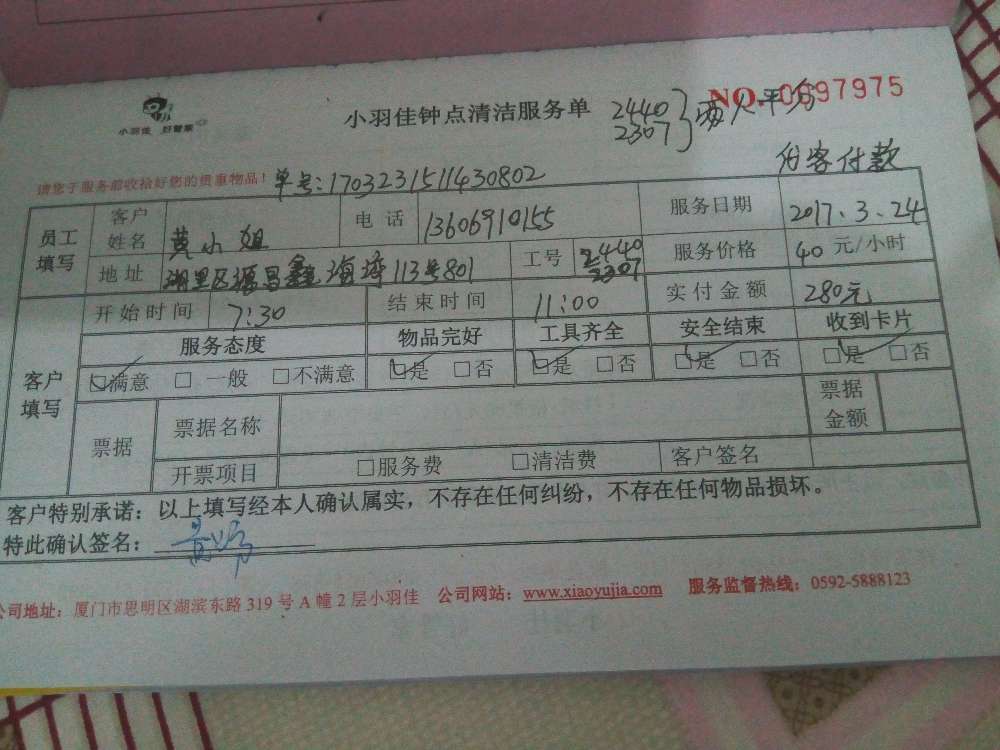 小羽佳 好管家
小羽佳钟点清洁服务单
NO. 0697975
2440
2307 } 两人平分
请您于服务前收拾好您的贵重物品！ 单号：1703231511430802
付款
员工填写 客户姓名 黄小姐 电话 13606910155 服务日期 2017.3.24
地址 湖里区源昌鑫海湾113号801 工号 2440 2307 服务价格 40 元/小时
开始时间 7:30 结束时间 11:00 实付金额 280元
客户填写 服务态度 物品完好 工具齐全 安全结束 收到卡片
☑满意 □ 一般 □不满意 ☑是 □否 ☑是 □否 ☑是 □否 ☑是 □否
票据 票据名称 票据金额
开票项目 □服务费 □清洁费 客户签名
客户特别承诺：以上填写经本人确认属实，不存在任何纠纷，不存在任何物品损坏。
特此确认签名：
公司地址：厦门市思明区湖滨东路 319 号 A 幢 2 层小羽佳 公司网站：www.xiaoyujia.com 服务监督热线：0592-5888123